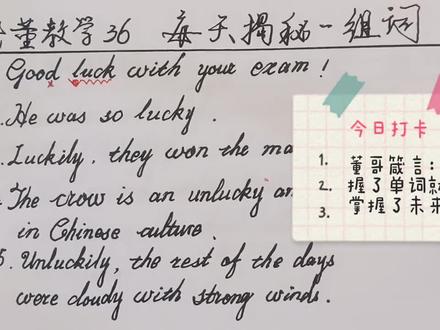 董教学36 每天揭秘一组词
Good luck with your exam!
He was so lucky.
Luckily, they won the
The crow is an unlucky
in Chinese culture.
5. Unluckily, the rest of the days
were cloudy with strong winds.
今日打卡
1. 董哥箴言:
2. 握了单词就
3. 掌握了未来